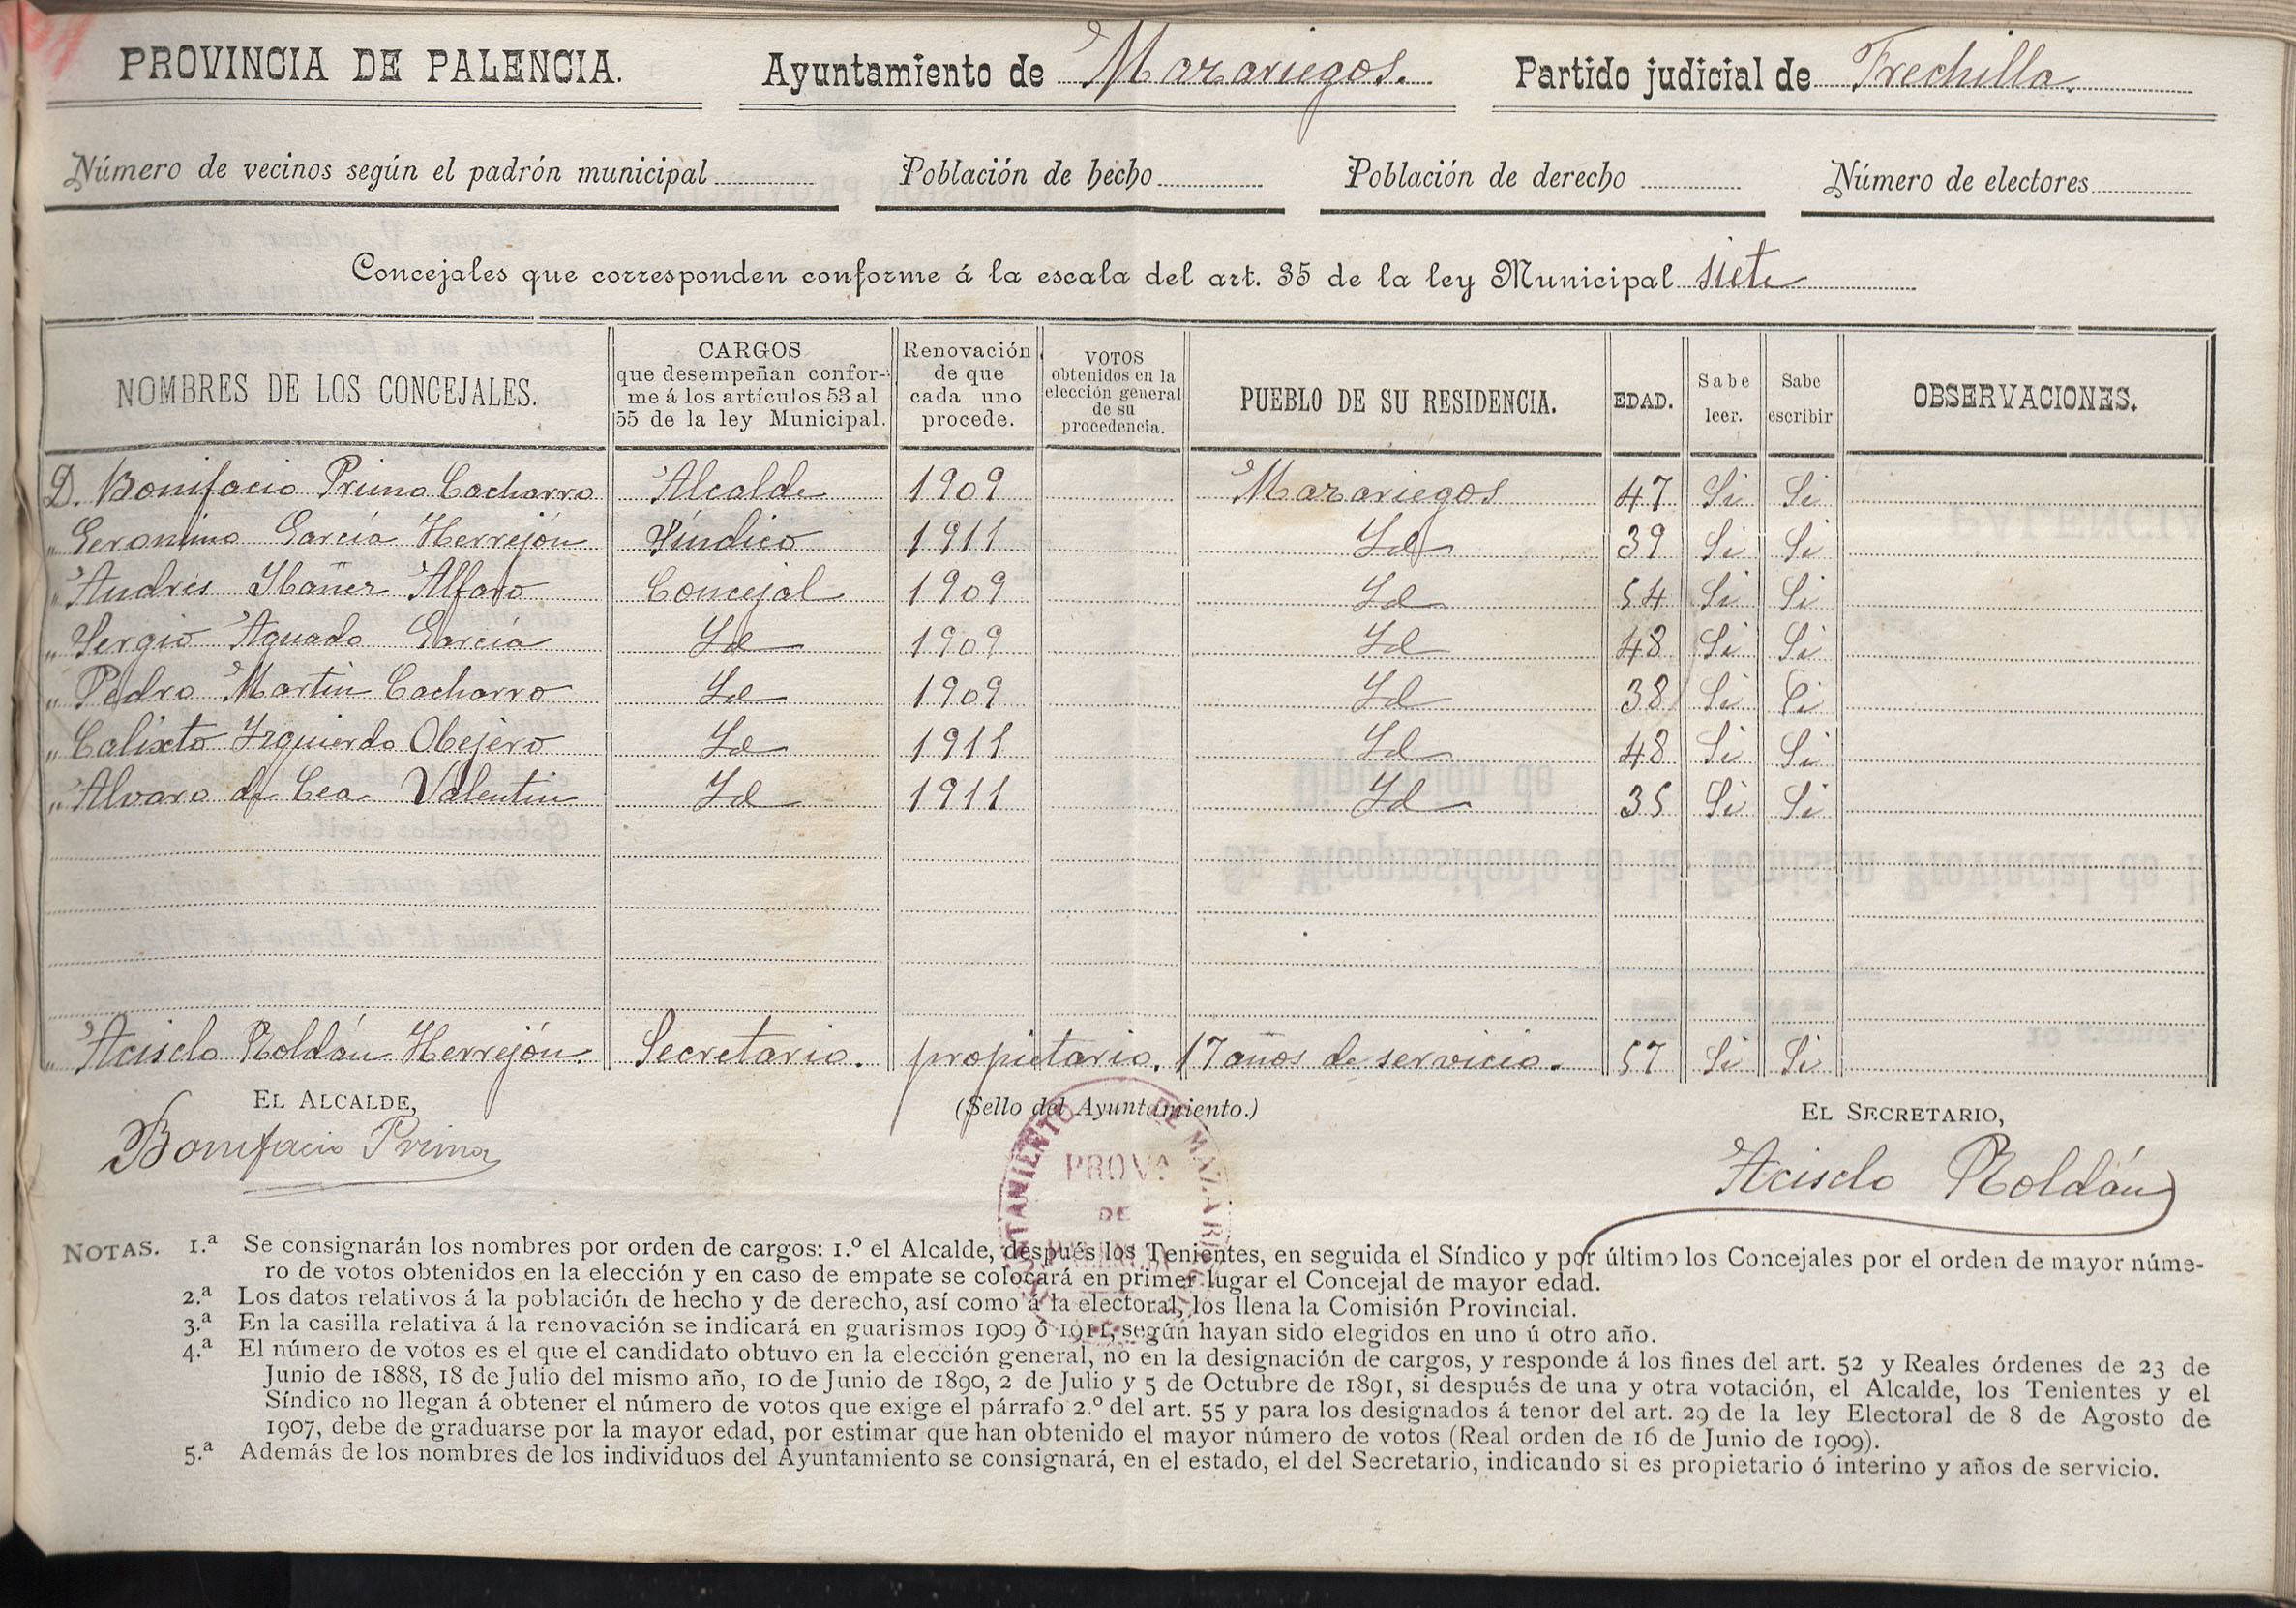 PROVINCIA DE PALENCIA. Ayuntamiento de Mazariegos. Partido judicial de Frechilla.
Número de vecinos según el padrón municipal Población de hecho Población de derecho Número de electores
Concejales que corresponden conforme á la escala del art. 35 de la ley Municipal siete
NOMBRES DE LOS CONCEJALES. CARGOS que desempeñan confor- me á los artículos 53 al 55 de la ley Municipal. Renovación de que cada uno procede. VOTOS obtenidos en la elección general de su procedencia. PUEBLO DE SU RESIDENCIA. EDAD. Sabe leer. Sabe escribir OBSERVACIONES.
D. Bonifacio Primo Cacharro Alcalde 1909 Mazariegos 47 Si Si
" Geronimo García Herrejón Síndico 1911 Id 39 Si Si
" Andrés Ibáñez Alfaro Concejal 1909 Id 54 Si Si
" Sergio Aguado García Id 1909 Id 48 Si Si
" Pedro Martin Cacharro Id 1909 Id 38 Si Si
" Calixto Izquierdo Obejero Id 1911 Id 48 Si Si
" Alvaro de Cea Valentin Id 1911 Id 35 Si Si
" Acisclo Roldán Herrejón. Secretario. propietario. 17 años de servicio. 57 Si Si
EL ALCALDE, (Sello del Ayuntamiento.) EL SECRETARIO,
Bonifacio Primo Acisclo Roldán
AYUNTAMIENTO DE MAZARIEGOS
PROVA
DE
NOTAS. 1.ª Se consignarán los nombres por orden de cargos: 1.º el Alcalde, después los Tenientes, en seguida el Síndico y por último los Concejales por el orden de mayor núme-
ro de votos obtenidos en la elección y en caso de empate se colocará en primer lugar el Concejal de mayor edad.
2.ª Los datos relativos á la población de hecho y de derecho, así como á la electoral, los llena la Comisión Provincial.
3.ª En la casilla relativa á la renovación se indicará en guarismos 1909 ó 1911, según hayan sido elegidos en uno ú otro año.
4.ª El número de votos es el que el candidato obtuvo en la elección general, no en la designación de cargos, y responde á los fines del art. 52 y Reales órdenes de 23 de
Junio de 1888, 18 de Julio del mismo año, 10 de Junio de 1890, 2 de Julio y 5 de Octubre de 1891, si después de una y otra votación, el Alcalde, los Tenientes y el
Síndico no llegan á obtener el número de votos que exige el párrafo 2.º del art. 55 y para los designados á tenor del art. 29 de la ley Electoral de 8 de Agosto de
1907, debe de graduarse por la mayor edad, por estimar que han obtenido el mayor número de votos (Real orden de 16 de Junio de 1909).
5.ª Además de los nombres de los individuos del Ayuntamiento se consignará, en el estado, el del Secretario, indicando si es propietario ó interino y años de servicio.